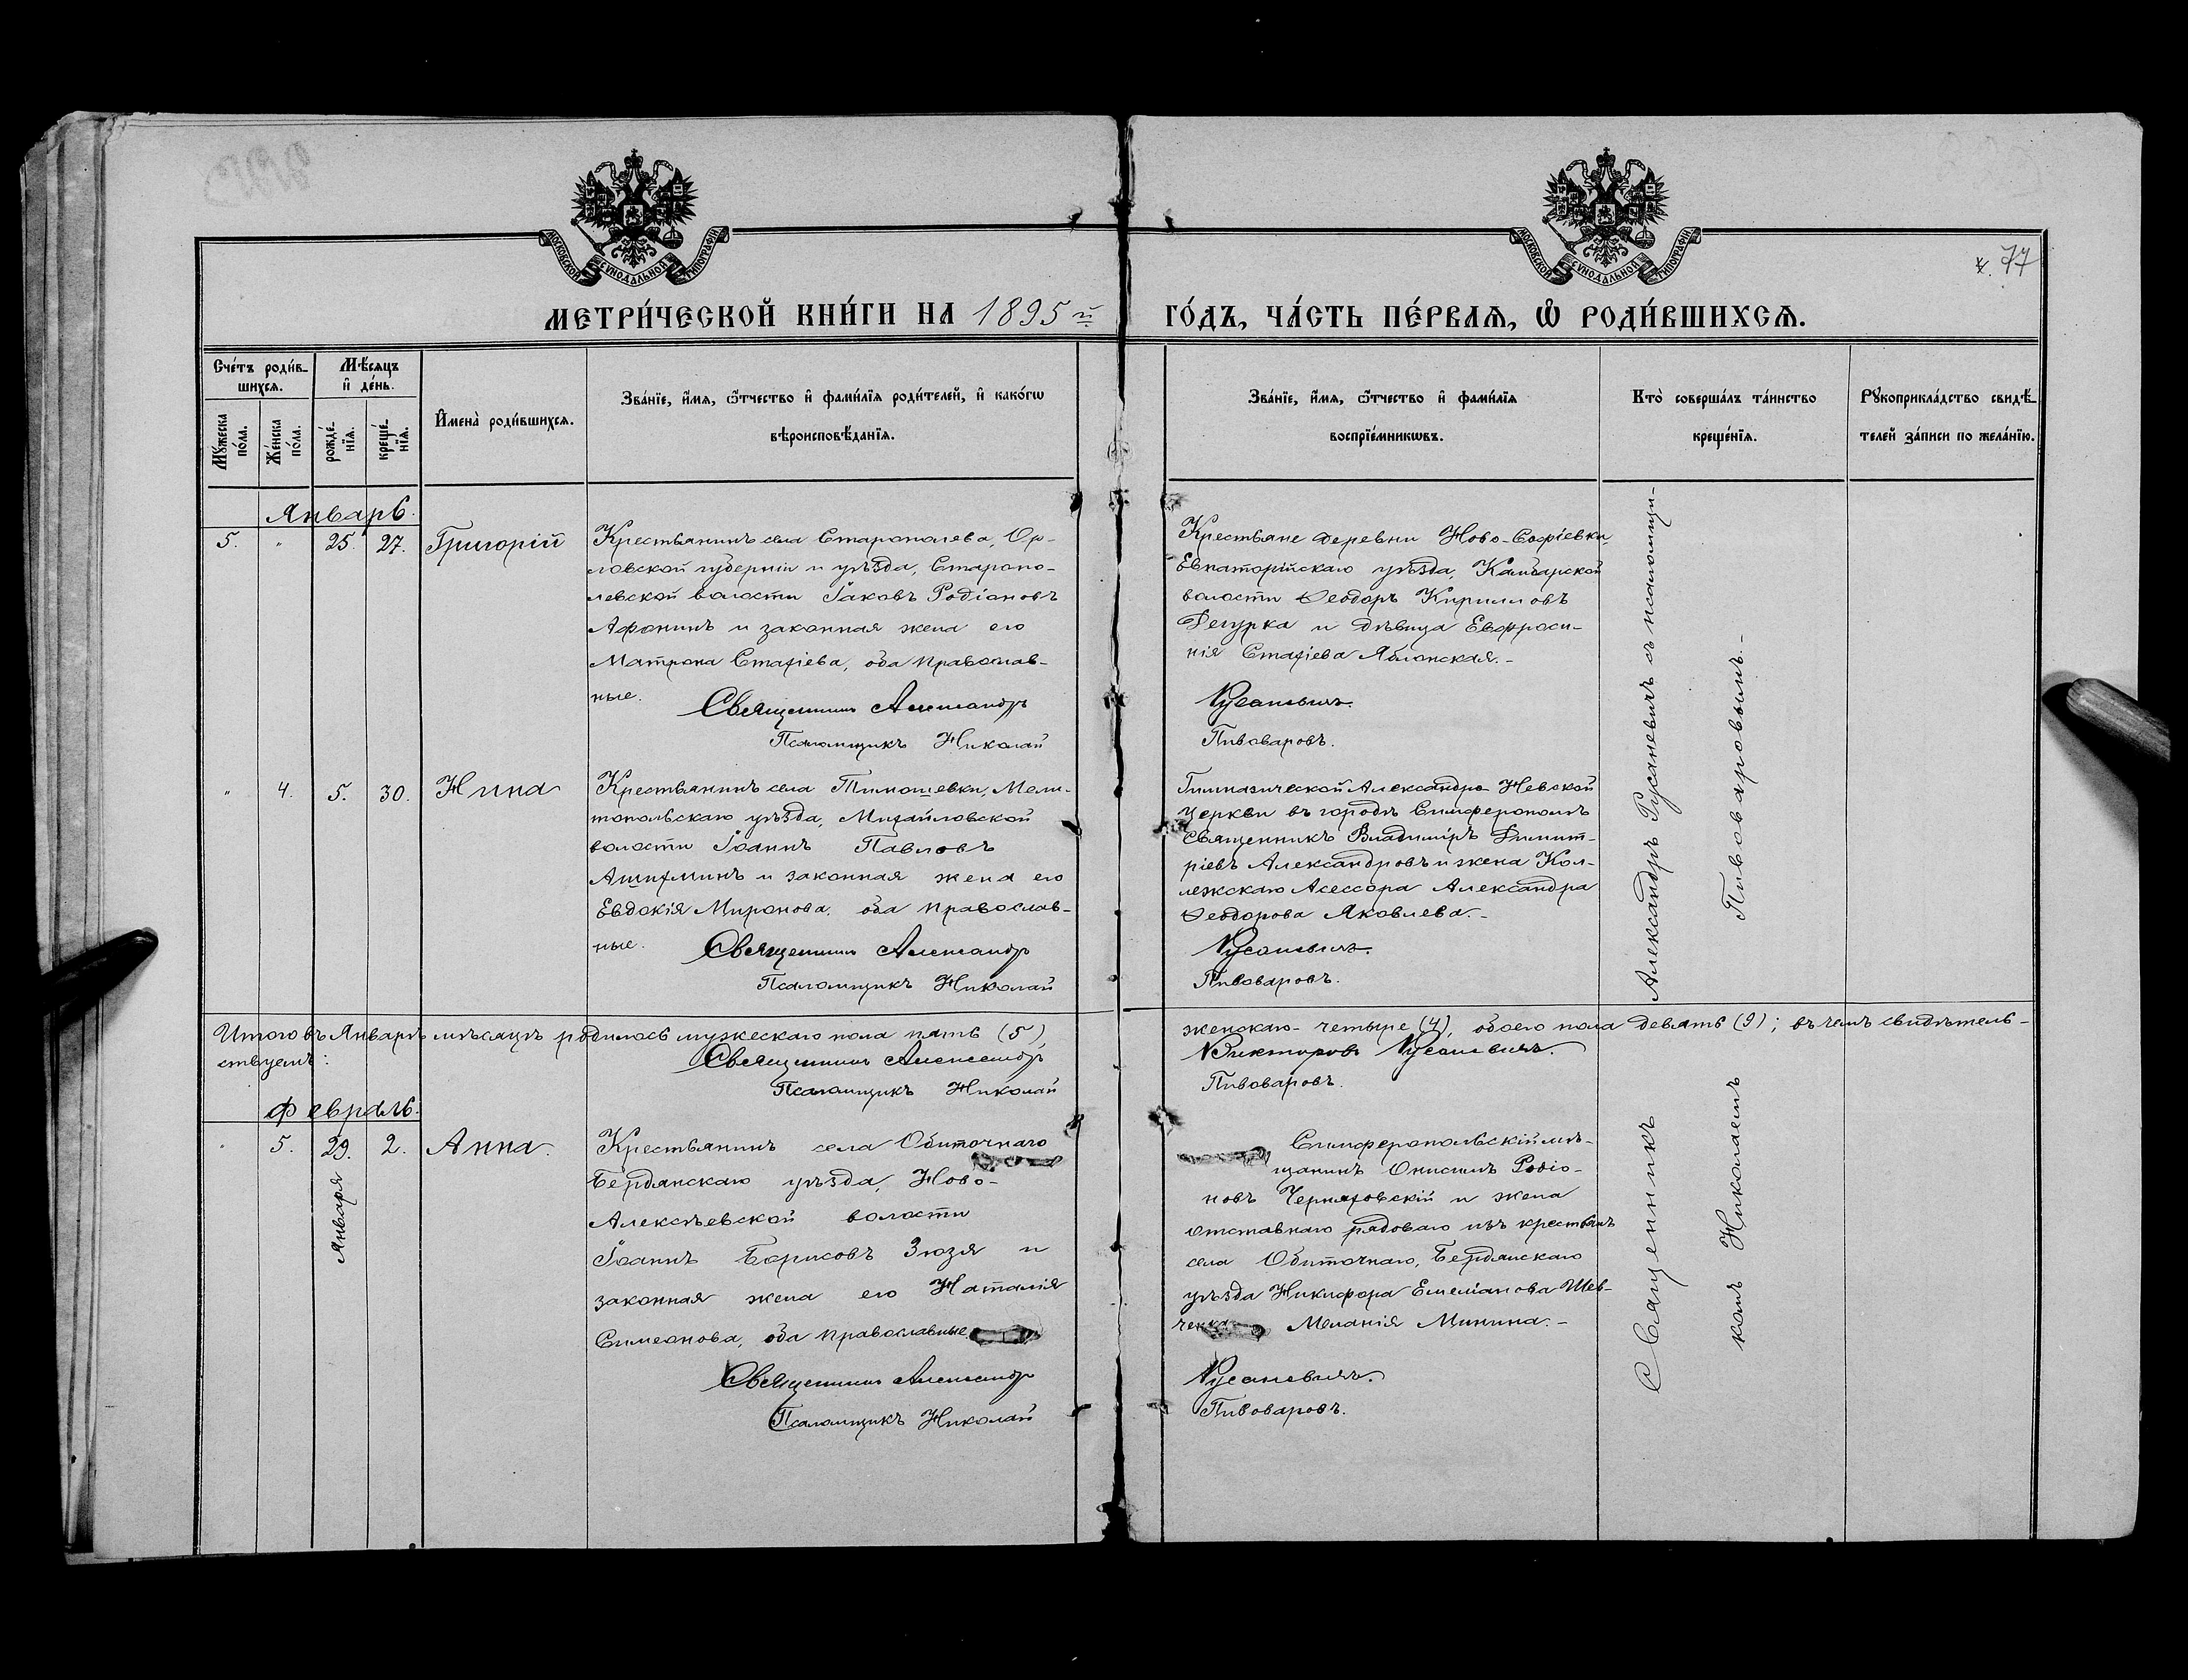 МОСКОВСКОЙ СѴНОДАЛЬНОЙ ТИПОГРАФІИ
МОСКОВСКОЙ СѴНОДАЛЬНОЙ ТИПОГРАФІИ
77
МЕТРИ́ЧЕСКОЙ КНИ́ГИ НА 1895й
ГО́ДЪ, ЧА́СТЬ ПЕ́РВАѦ, Ѿ РОДИ́ВШИХСѦ.
Сче́тъ роди́в-
шихсѧ.
Мѣ́сѧцъ
и҆ де́нь.
Мꙋ́жеска
по́ла.
Же́нска
по́ла.
рожде́-
нїѧ.
креще́-
нїѧ.
И҆мена̀ роди́вшихсѧ.
Зва́нїе, и҆́мѧ, ѻ҆́тчество и҆ фами́лїѧ роди́телей, и҆ како́гѡ
вѣроисповѣ́данїѧ.
Зва́нїе, и҆́мѧ, ѻ҆́тчество и҆ фами́лїѧ
воспрїе́мникѡвъ.
Кто̀ соверша́лъ та́инство
креще́нїѧ.
Рꙋкоприкла́дство свидѣ́-
телей за́писи по жела́нїю.
Январь.
5. " 25. 27. Григорій
Крестьянинъ села Старополева, Ор-
ловской губерніи и уѣзда, Старопо-
левской волости Іаковъ Родіоновъ
Афонинъ и законная жена его
Матрона Стахіева, оба православ-
ные.
Священникъ Александръ
Псаломщикъ Николай
Крестьяне деревни Ново-Софіевки,
Евпаторійскаго уѣзда, Камбарской
волости Ѳеодоръ Кирилловъ
Дегурка и дѣвица Евфроси-
нія Стахіева Яблонская.-
Русаневичъ.
Пивоваровъ.
" 4. 5. 30. Нина
Крестьянинъ села Тимошевки, Мели-
топольскаго уѣзда, Михайловской
волости Іоаннъ Павловъ
Ашихминъ и законная жена его
Евдокія Миронова, оба православ-
ные.
Священникъ Александръ
Псаломщикъ Николай
Гимназической Александро-Невской
церкви въ городѣ Симферополѣ
Священникъ Владиміръ Димит-
ріевъ Александровъ и жена Кол-
лежскаго Асессора Александра
Ѳеодорова Яковлева.-
Русаневичъ.
Пивоваровъ.
Александръ Русаневичъ съ псаломщи-
Пивоваровымъ.-
Итого въ Январѣ мѣсяцѣ родилось мужескаго пола пять (5),
женскаго- четыре (4), обоего пола девять (9); въ чемъ свидѣтель-
ствуемъ:
Священникъ Александръ
Викторовъ Русаневичъ.
Псаломщикъ Николай
Пивоваровъ.
Февраль.
" 5. 29. 2. Анна.
Января
Крестьянинъ села Обиточнаго
Бердянскаго уѣзда, Ново-
Алексѣевской волости
Іоаннъ Борисовъ Зюзя и
законная жена его Наталія
Симеонова, оба православные.
Священникъ Александръ
Псаломщикъ Николай
Симферопольскій мѣ-
щанинъ Онисимъ Родіо-
новъ Черняховскій и жена
отставнаго рядоваго изъ крестьянъ
села Обиточнаго, Бердянскаго
уѣзда Никифора Емеліанова Шев-
ченка Меланія Минина.-
Русаневичъ.
Пивоваровъ.
Священникъ
комъ Николаемъ